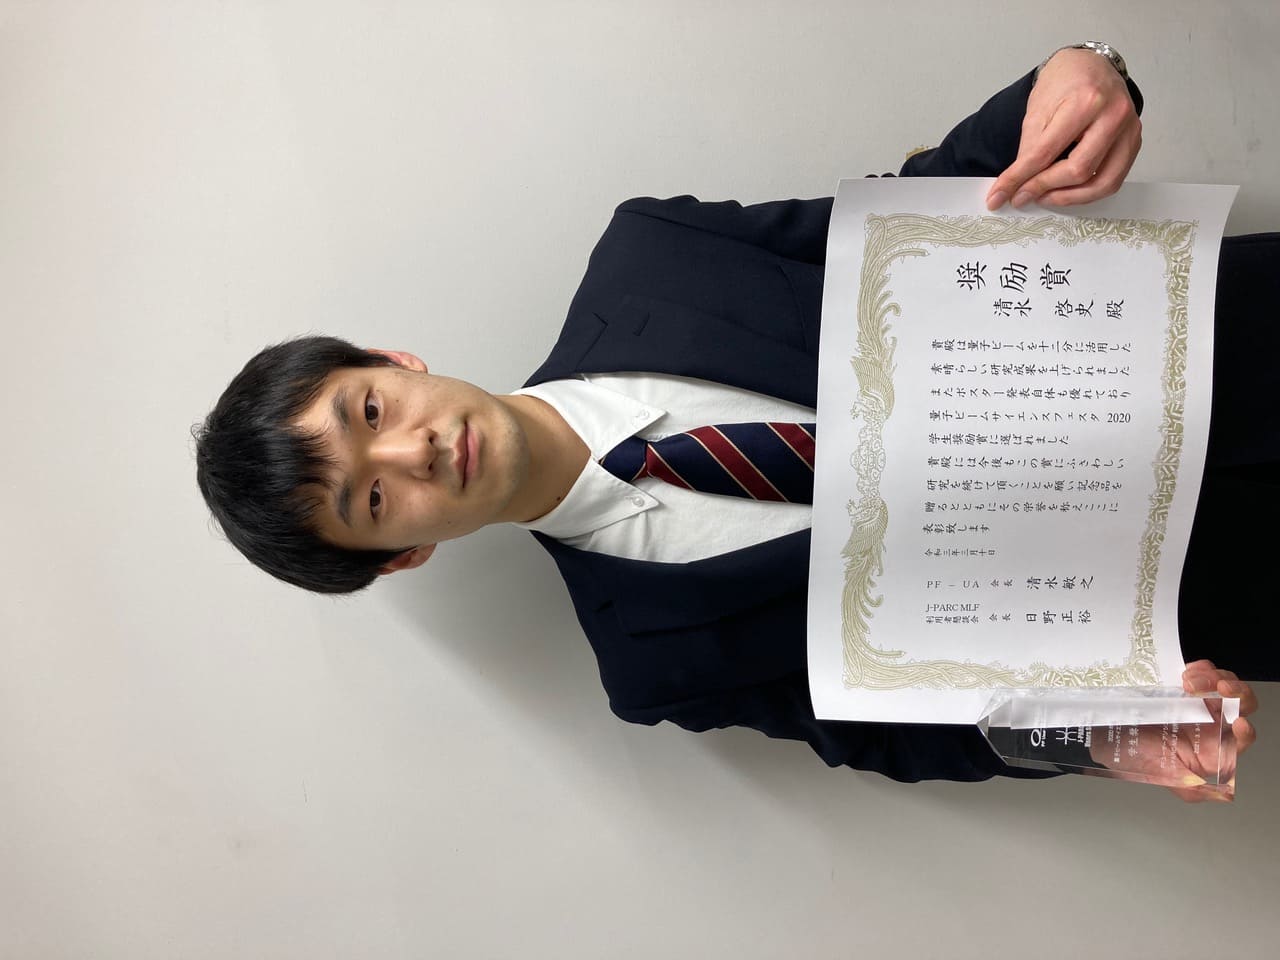 奨励賞
清水 啓史 殿
貴殿は量子ビームを十二分に活用した
素晴らしい研究成果を上げられました
またポスター発表自体も優れており
量子ビームサイエンスフェスタ 2020
学生奨励賞に選ばれました
貴殿には今後もこの賞にふさわしい
研究を続けて頂くことを願い記念品を
贈るとともにその栄誉を称えここに
表彰致します
令和三年三月十日
PF-UA 会長 清水敏之
J-PARC MLF
利用者懇談会 会長 日野正裕
学生奨